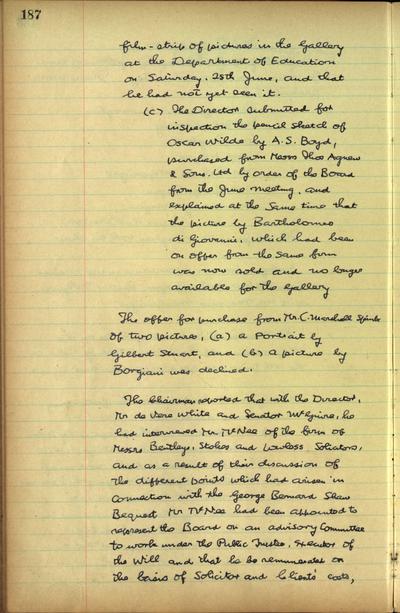 187
film-strip of pictures in the Gallery
at the Department of Education
on Saturday, 25th June, and that
he had not yet seen it.
(c) The Director submitted for
inspection the pencil sketch of
Oscar Wilde by A.S. Boyd,
purchased from Messrs Thos Agnew
& Sons. Ltd by order of the Board
from the June meeting, and
explained at the same time that
the picture by Bartholomeo
di Giovanni, which had been
on offer from the same firm
was now sold and no longer
available for the Gallery
The offer for purchase from Mr. C. Marshall Spink
of two pictures, (a) a Portrait by
Gilbert Stuart, and (b) a picture by
Borgiani was declined.
The Chairman reported that with the Director,
Mr de Vere White and Senator McGuire, he
had interviewed Mr. McNee of the firm of
Messrs Bentleys, Stokes and Lowless, Solicitors,
and as a result of their discussion of
the different points which had arisen in
connection with the George Bernard Shaw
Bequest Mr McNee had been appointed to
represent the Board on an advisory Committee
to work under the Public Trustee, Executor of
the Will and that he be remunerated on
the basis of Solicitor and Clients' costs,